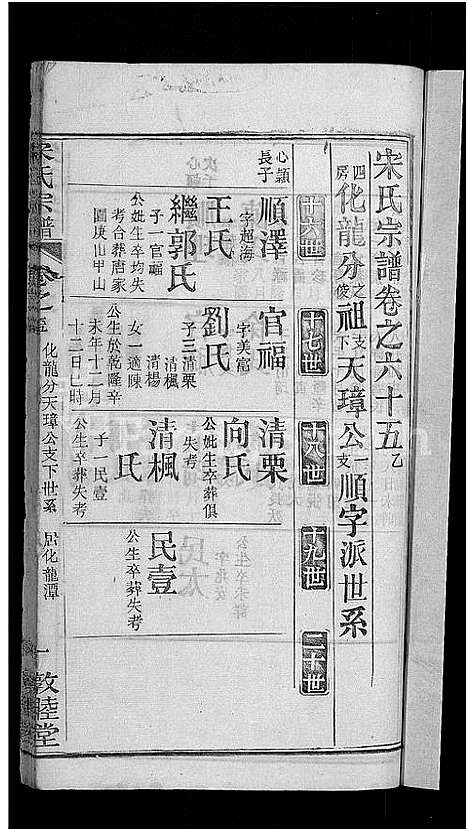 宋氏宗譜卷之六十五乙
四房化龍分之俊祖支下天璋公一支順字派世系
十六世
十七世
十八世
十九世
二十世
心頴長子
順澤
字超海
王氏
繼郭氏
子一官福
公妣生卒均失考合葬唐家園庚山甲山
官福
字美富
劉氏
子三清栗
清楓
清楊
女一適陳
公生於乾隆辛未年十二月十二日巳時
清栗
向氏
公妣生卒葬俱失考
清楓
氏
子一民壹
公生卒葬失考
民壹
公生卒葬失考
宋氏宗譜
卷之
化龍分天璋公支下世系
居化龍潭
一
敦睦堂